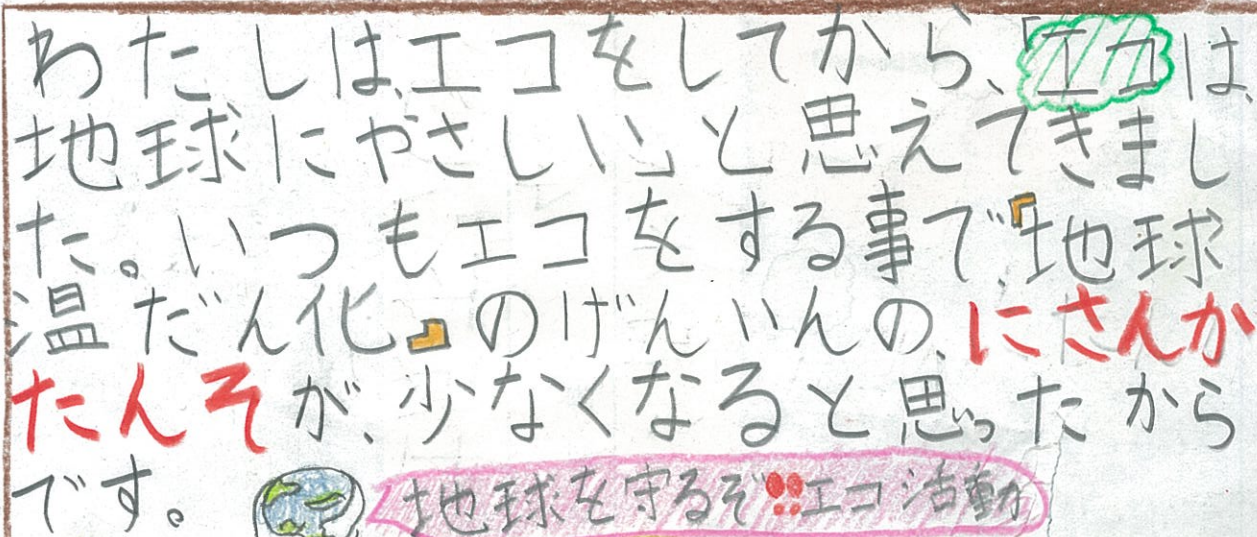 わたしは、エコをしてから、「エコは、
地球にやさしい」と思えてきまし
た。いつもエコをする事で、『地球
温だん化』のげんいんの、にさんか
たんそが、少なくなると思ったから
です。
地球を守るぞ!!エコ活動